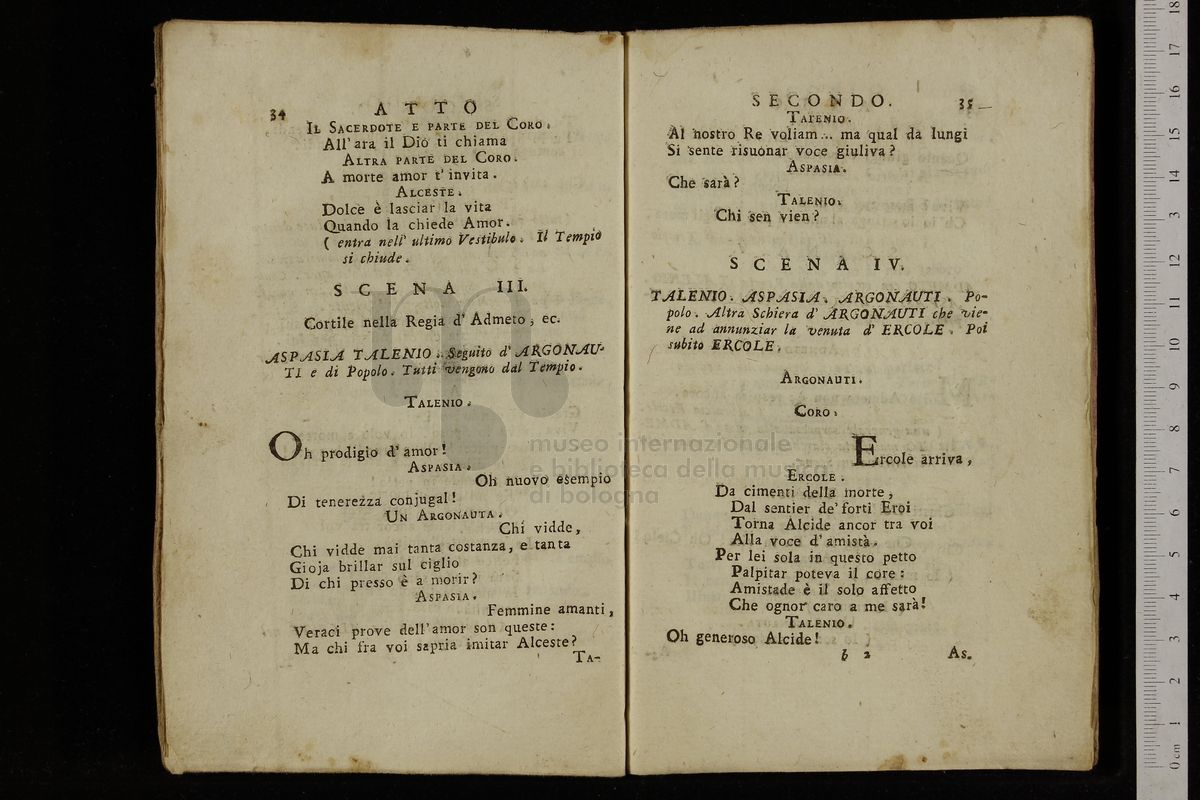 34
ATTO
IL SACERDOTE E PARTE DEL CORO.
All' ara il Dio ti chiama
ALTRA PARTE DEL CORO.
A morte amor t' invita.
ALCESTE.
Dolce è lasciar la vita
Quando la chiede Amor.
( entra nell' ultimo Vestibulo. Il Tempio
si chiude.
SCENA III.
Cortile nella Regia d' Admeto, ec.
ASPASIA TALENIO. Seguito d' ARGONAU-
TI e di Popolo. Tutti vengono dal Tempio.
TALENIO.
Oh prodigio d' amor!
ASPASIA.
Oh nuovo esempio
Di tenerezza conjugal!
UN ARGONAUTA.
Chi vidde,
Chi vidde mai tanta costanza, e tanta
Gioja brillar sul ciglio
Di chi presso è a morir?
ASPASIA.
Femmine amanti,
Veraci prove dell' amor son queste:
Ma chi fra voi sapria imitar Alceste?
TA-
SECONDO.
35
TALENIO.
Al nostro Re voliam... ma qual da lungi
Si sente risuonar voce giuliva?
ASPASIA.
Che sarà?
TALENIO.
Chi sen vien?
SCENA IV.
TALENIO. ASPASIA. ARGONAUTI. Po-
polo. Altra Schiera d' ARGONAUTI che vie-
ne ad annunziar la venuta d' ERCOLE. Poi
subito ERCOLE.
ARGONAUTI.
CORO.
Ercole arriva,
ERCOLE.
Da cimenti della morte,
Dal sentier de' forti Eroi
Torna Alcide ancor tra voi
Alla voce d' amistà.
Per lei sola in questo petto
Palpitar poteva il core:
Amistade è il solo affetto
Che ognor caro a me sarà!
TALENIO.
Oh generoso Alcide!
b 2
As.
museo internazionale
e biblioteca della musica
di bologna
0 cm 1 2 3 4 5 6 7 8 9 10 11 12 13 14 15 16 17 18